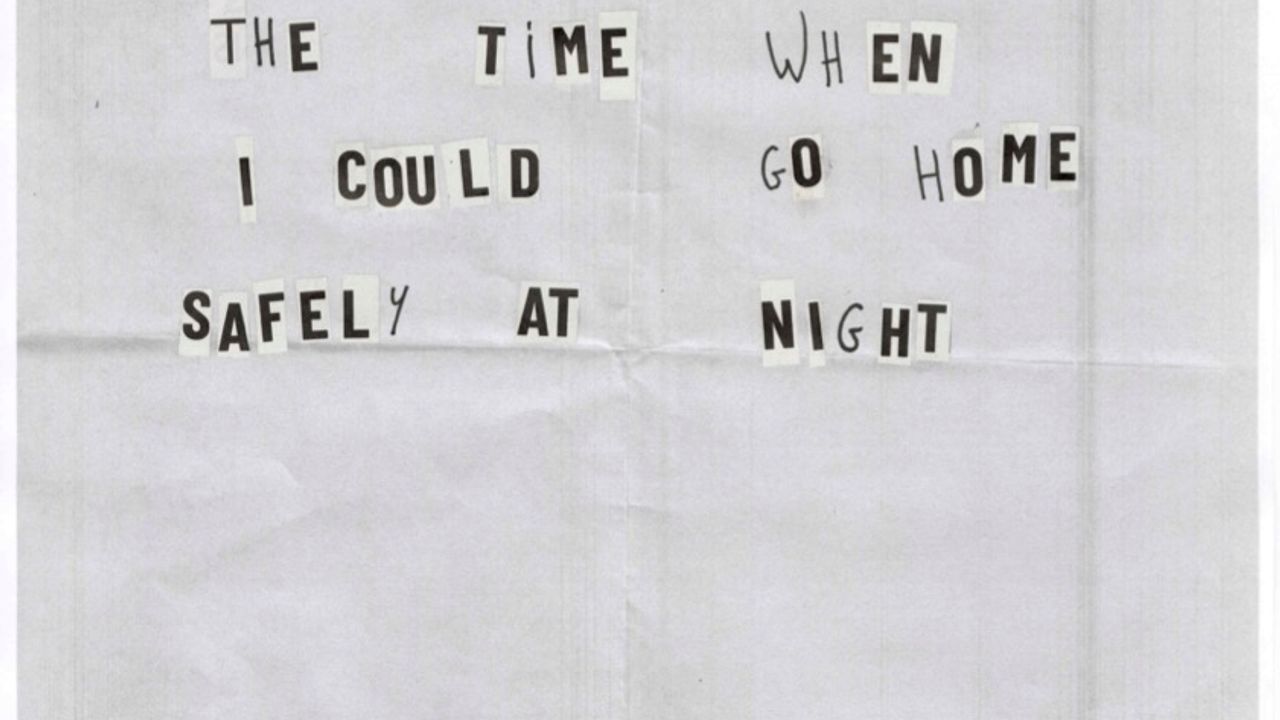 THE TiME WHEN
I COULD GO HOME
SAFELY AT NIGHT